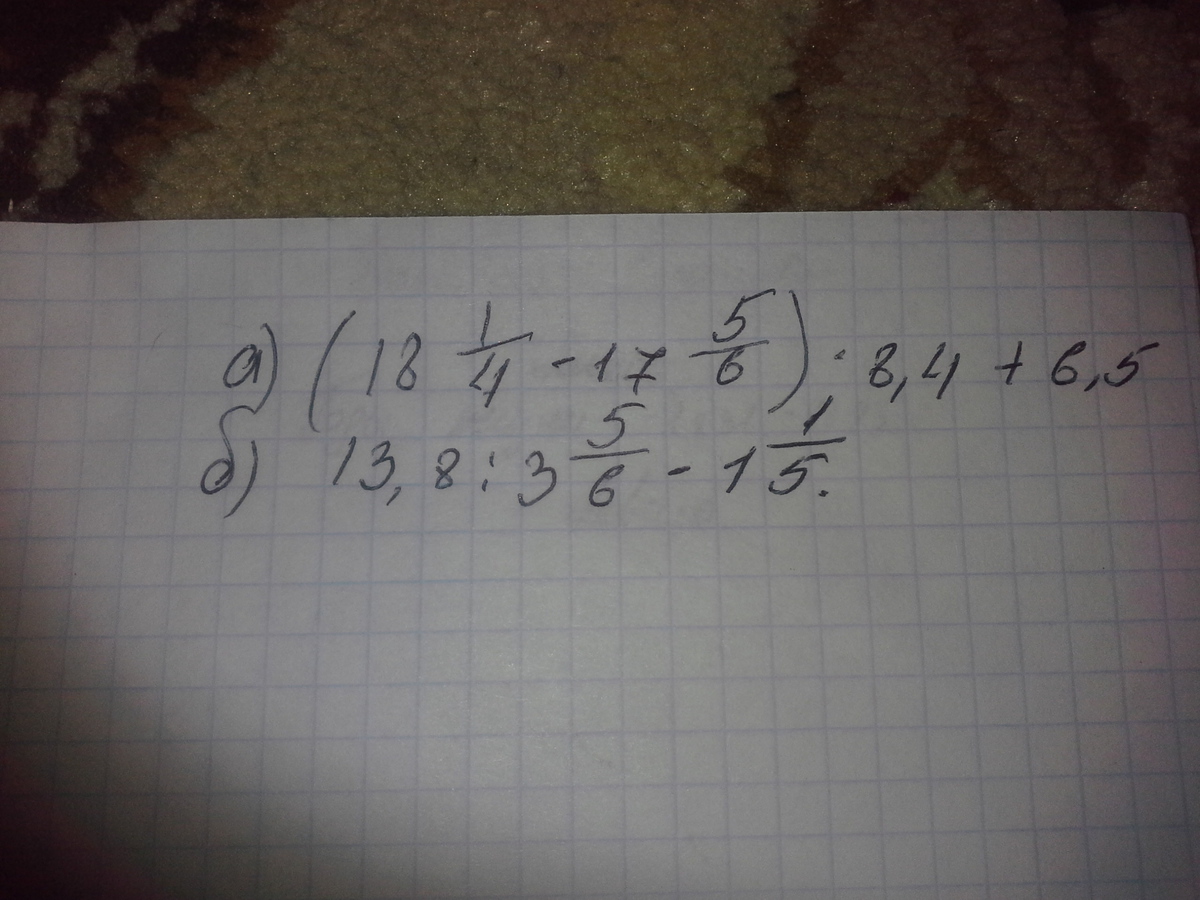 а) (18 1/4 - 17 5/6) · 8,4 + 6,5
б) 13,8 : 3 5/6 - 1 1/5.